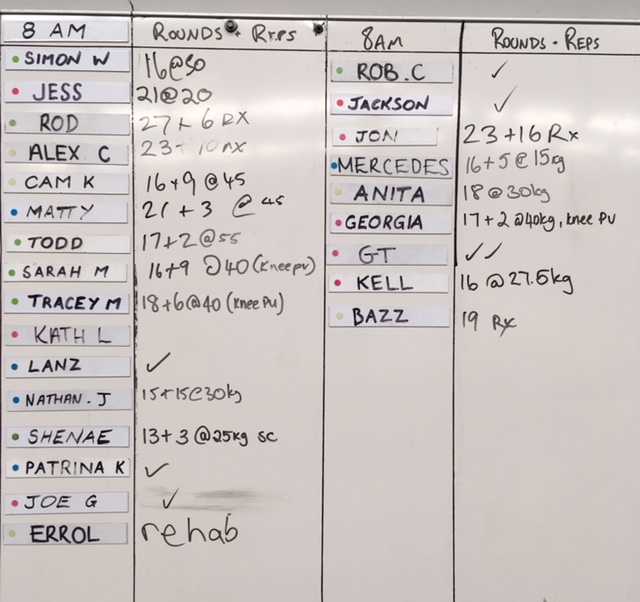 8 AM ROUNDS + REPS
SIMON W 16@50
JESS 21@20
ROD 27+6 RX
ALEX C 23+10 RX
CAM K 16+9 @45
MATTY 21+3 @ 45
TODD 17+2@55
SARAH M 16+9 @40 (knee pu)
TRACEY M 18+6@40 (knee PU)
KATH L
LANZ ✓
NATHAN.J 15+15@30kg
SHENAE 13+3 @25kg SC
PATRINA K ✓
JOE G ✓
ERROL rehab
8AM ROUNDS + REPS
ROB.C ✓
JACKSON ✓
JON 23+16 Rx
MERCEDES 16+5@15kg
ANITA 18@30kg
GEORGIA 17+2@40kg, knee PU
GT ✓✓
KELL 16 @27.5kg
BAZZ 19 Rx